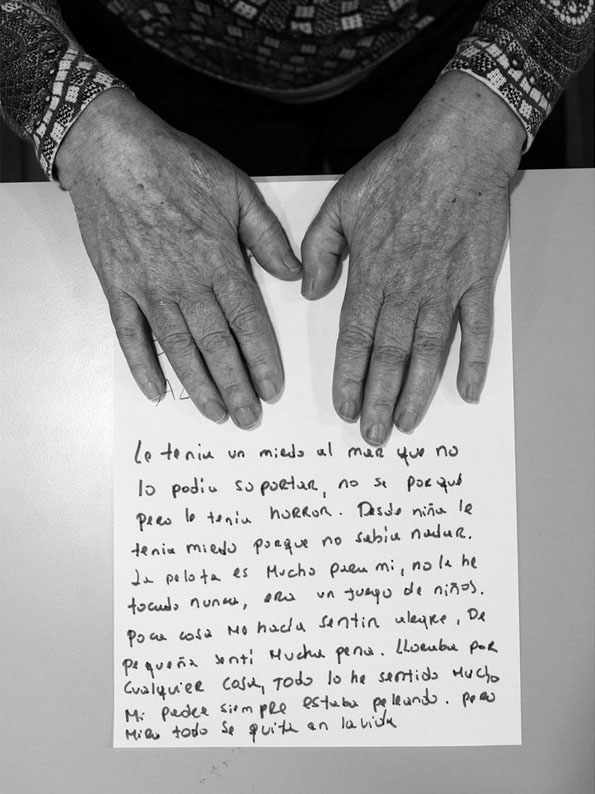 Le tenia un miedo al mar que no
lo podia soportar, no se porqué
pero le tenia HORROR. Desde niña le
tenia miedo porque no sabia nadar.
La pelota es Mucho para mi, no la he
tocado nunca, era un juego de niños.
Poca cosa Me hacía sentir alegre, De
pequeña sentí Mucha pena. Lloraba por
Cualquier Cosa, TODO lo he sentido Mucho
Mi padre siempre estaba peleando. pero
Mira todo se quita en la vida